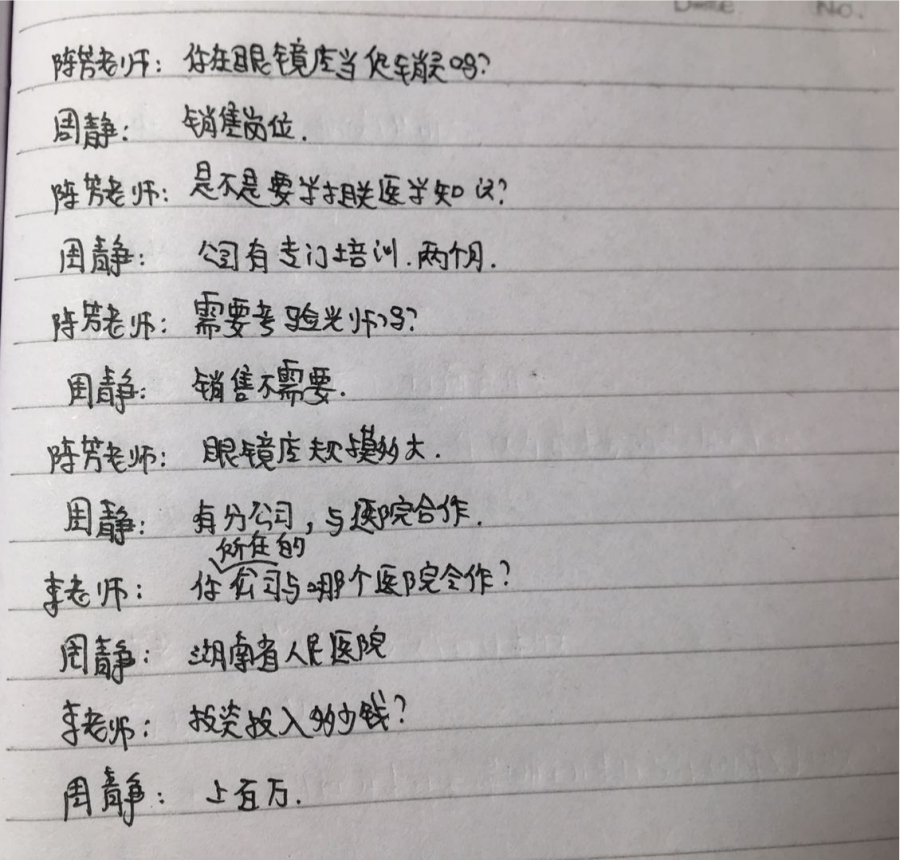 Date No.
陈芳老师：你在眼镜店当促销员吗？
周静：销售岗位.
陈芳老师：是不是要学相关医学知识？
周静：公司有专门培训.两个月.
陈芳老师：需要考验光师吗？
周静：销售不需要.
陈芳老师：眼镜店规模多大.
周静：有分公司，与医院合作.
李老师：你所在的公司与哪个医院合作？
周静：湖南省人民医院
李老师：投资投入多少钱？
周静：上百万.